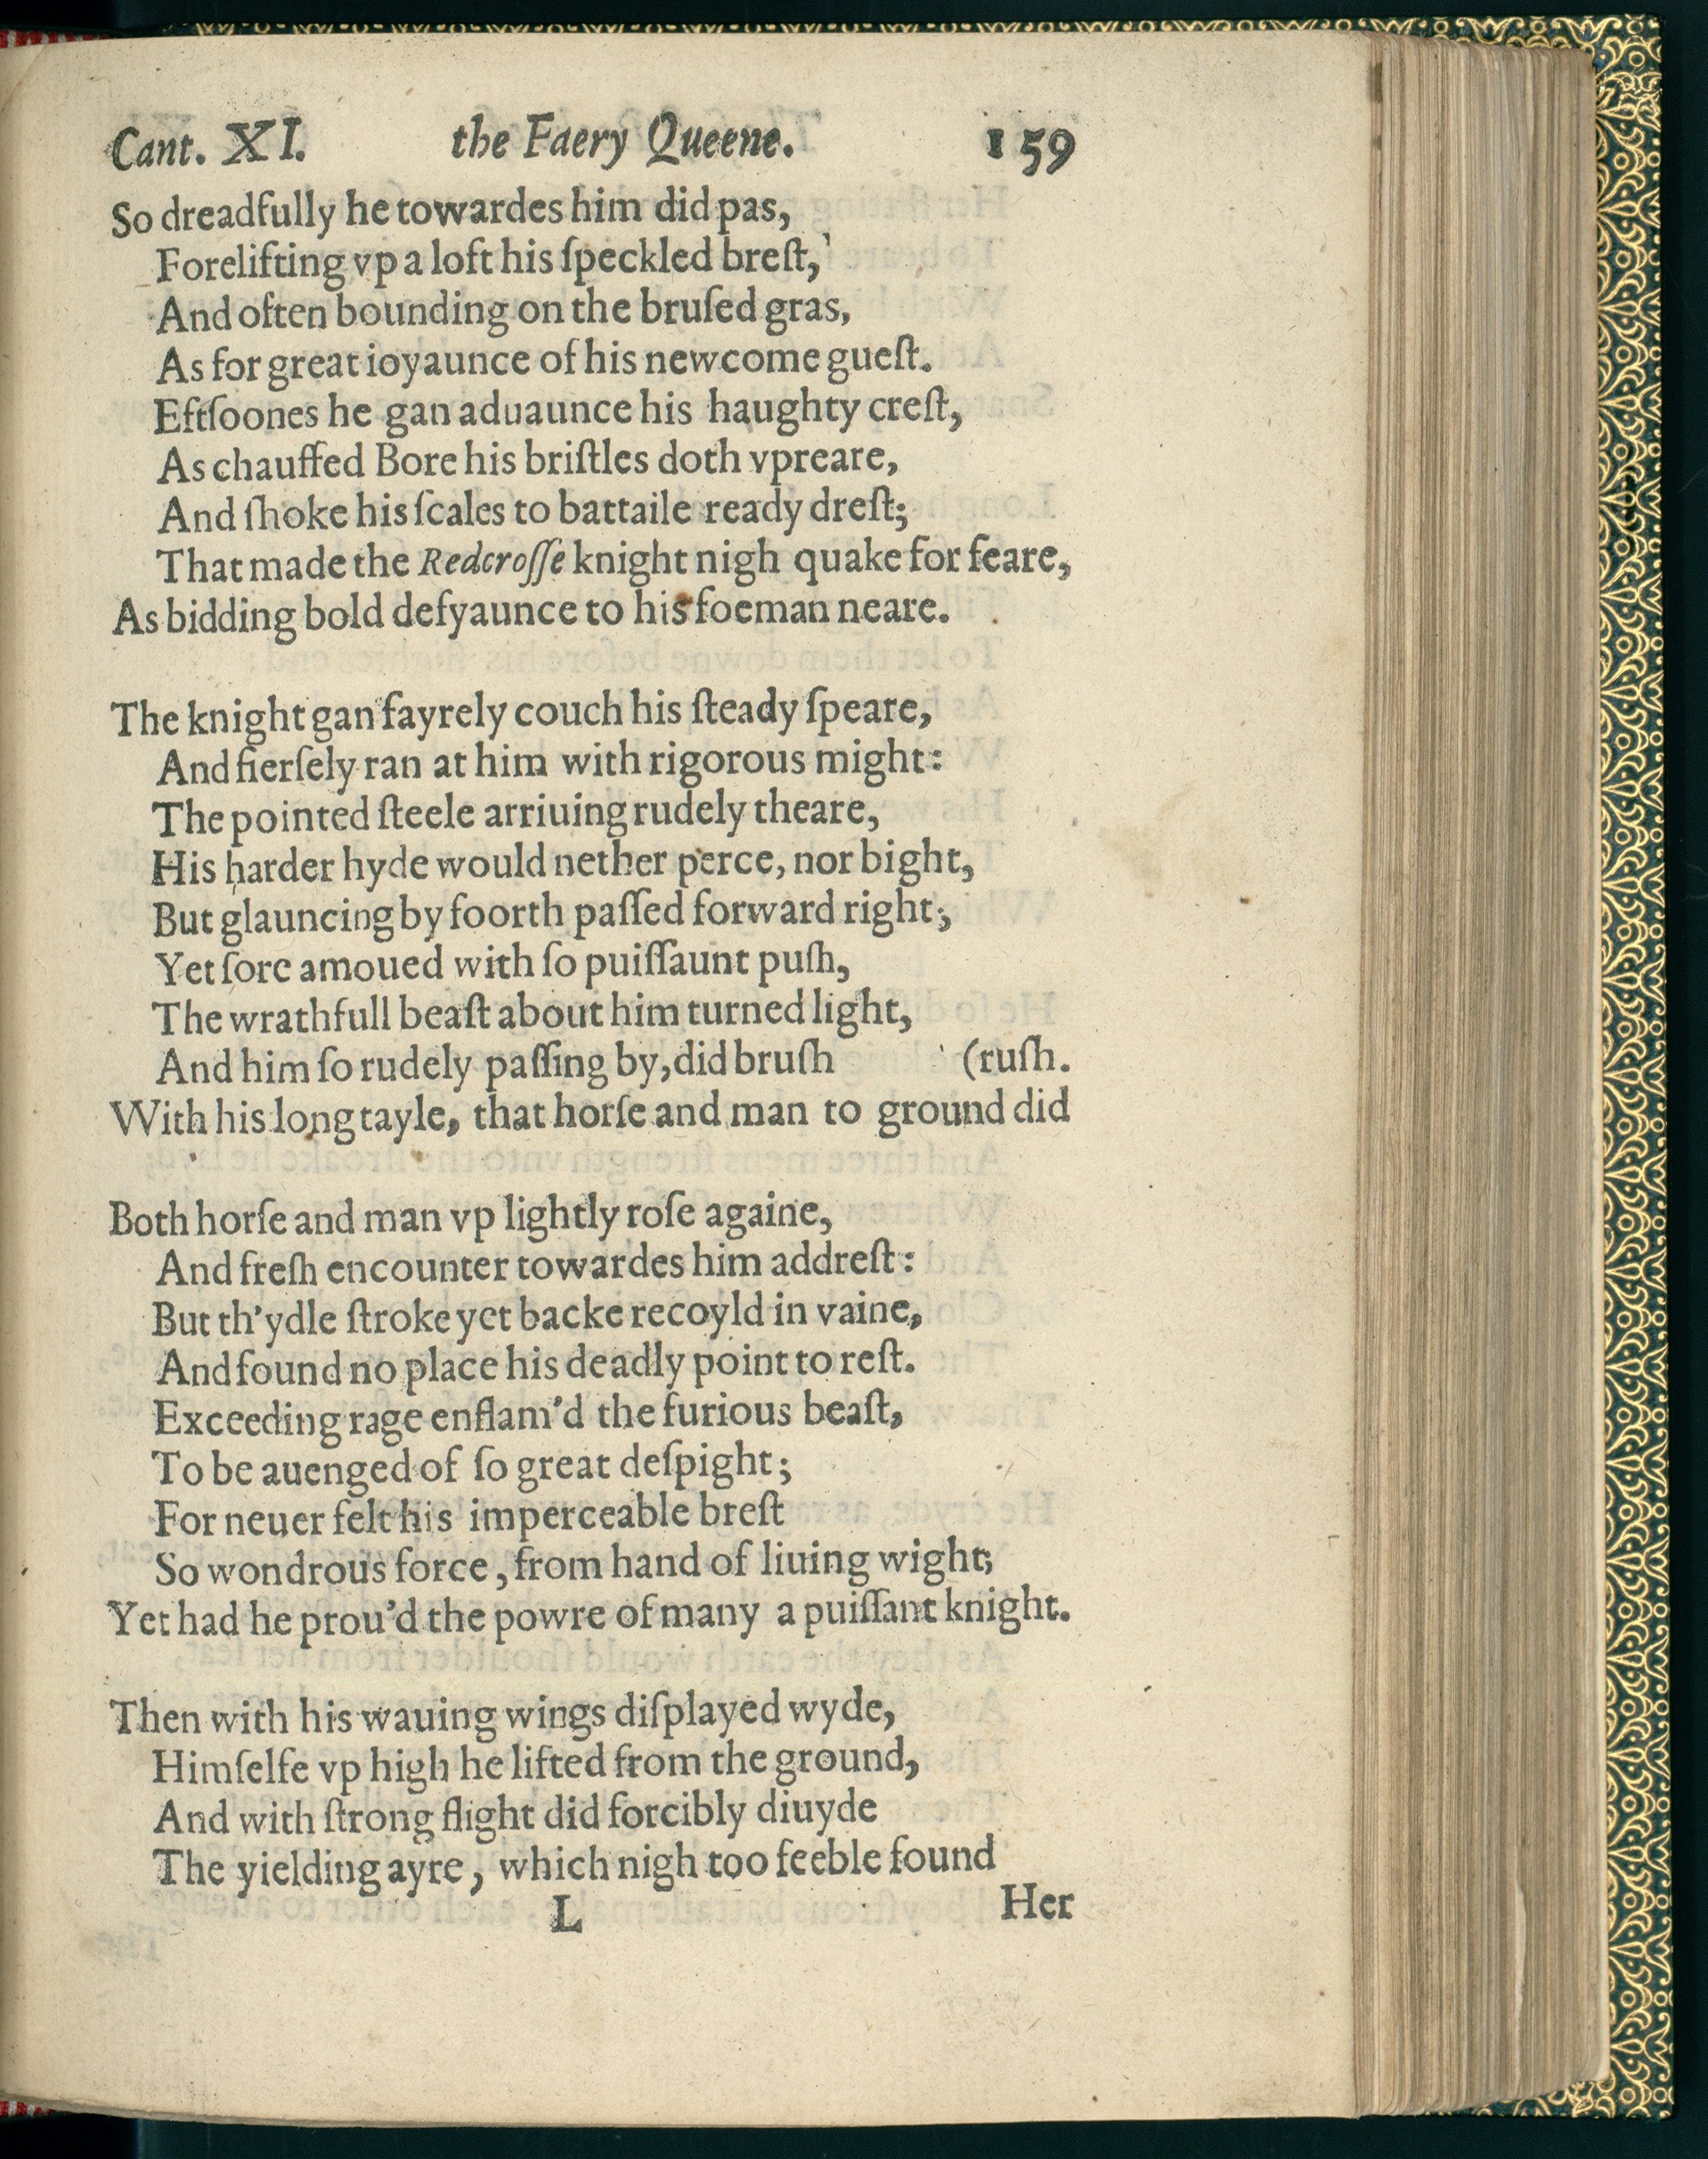 Cant. XI. the Faery Queene. 159
So dreadfully he towardes him did pas,
Forelifting vp a loft his ſpeckled breſt,
And often bounding on the bruſed gras,
As for great ioyaunce of his newcome gueſt.
Eftſoones he gan aduaunce his haughty creſt,
As chauffed Bore his briſtles doth vpreare,
And ſhoke his ſcales to battaile ready dreſt;
That made the Redcroſſe knight nigh quake for feare,
As bidding bold defyaunce to his foeman neare.
The knight gan fayrely couch his ſteady ſpeare,
And fierſely ran at him with rigorous might:
The pointed ſteele arriuing rudely theare,
His harder hyde would nether perce, nor bight,
But glauncing by foorth paſſed forward right;
Yet ſore amoued with ſo puiſſaunt puſh,
The wrathfull beaſt about him turned light,
And him ſo rudely paſſing by, did bruſh (ruſh.
With his long tayle, that horſe and man to ground did
Both horſe and man vp lightly roſe againe,
And freſh encounter towardes him addreſt:
But th'ydle ſtroke yet backe recoyld in vaine,
And found no place his deadly point to reſt.
Exceeding rage enflam'd the furious beaſt,
To be auenged of ſo great deſpight;
For neuer felt his imperceable breſt
So wondrous force, from hand of liuing wight;
Yet had he prou'd the powre of many a puiſſant knight.
Then with his wauing wings diſplayed wyde,
Himſelfe vp high he lifted from the ground,
And with ſtrong flight did forcibly diuyde
The yielding ayre, which nigh too feeble found
L Her